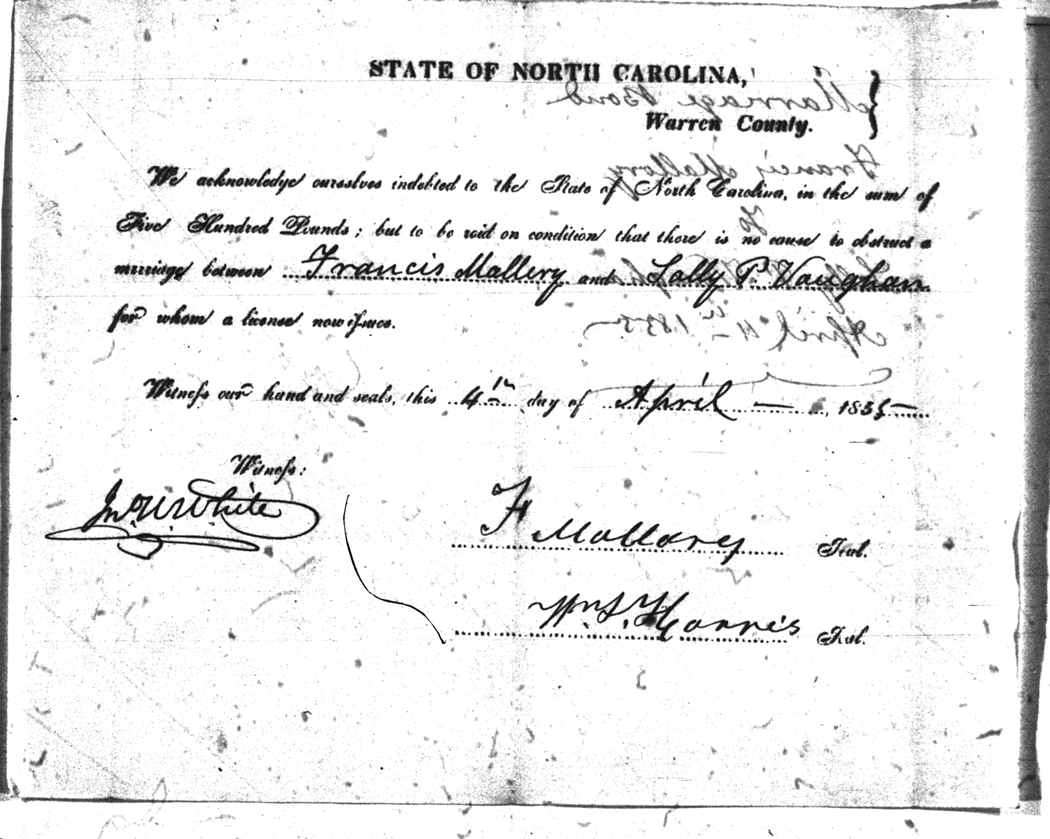 STATE OF NORTH CAROLINA,
Warren County.
We acknowledge ourselves indebted to the State of North Carolina, in the sum of
Five Hundred Pounds; but to be void on condition that there is no cause to obstruct a
marriage between Francis Mallery and Sally P. Vaughan
for whom a license now issues.
Witness our hand and seals, this 4th day of April 1835
Witness:
Jno. W. White
F Mallory Seal.
Wm. S. Harris Seal.
Marriage Bond
Francis Mallory
To
April 4th 1835